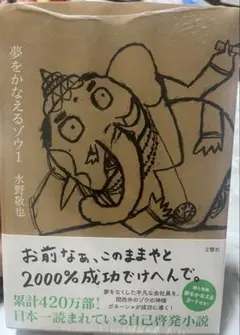 夢をかなえるゾウ1
水野敬也
文響社
お前なぁ、このままやと
2000%成功でけへんで。
夢をなくした平凡な会社員を、
関西弁のゾウの神様
ガネーシャが成功に導く!
累計420万部!
日本一読まれている自己啓発小説